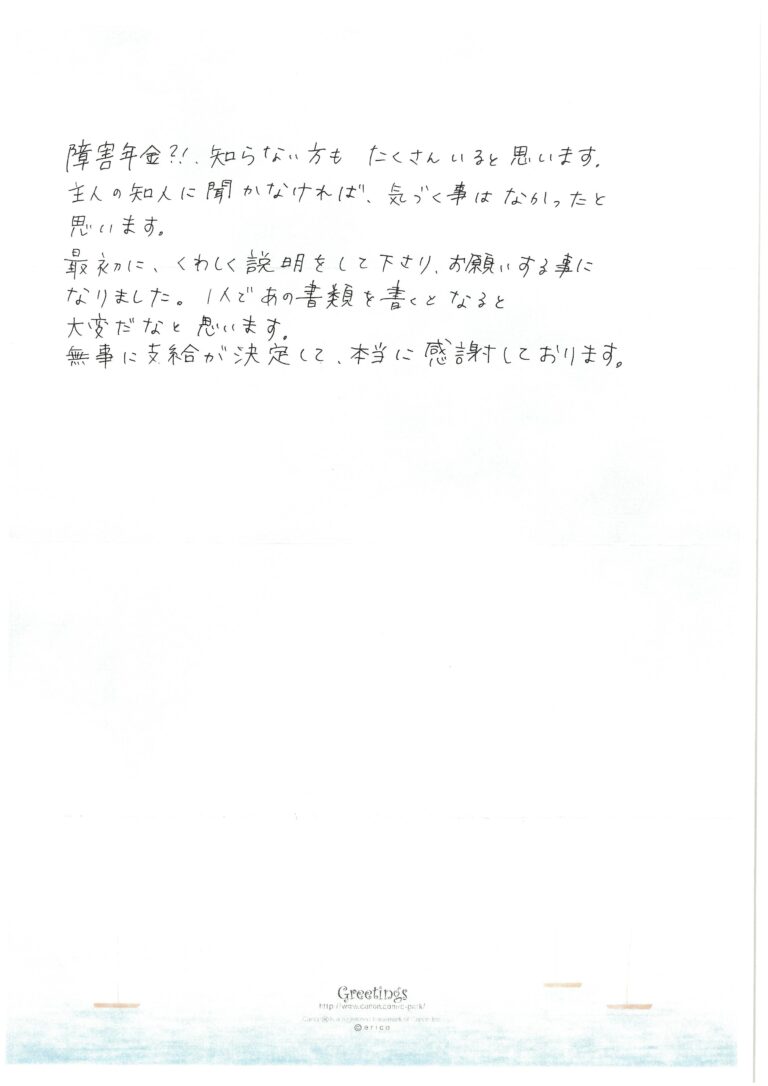 障害年金?!、知らない方も たくさんいると思います。
主人の知人に聞かなければ、気づく事はなかったと
思います。
最初に、くわしく説明をして下さり、お願いする事に
なりました。1人であの書類を書くとなると
大変だなと思います。
無事に支給が決定して、本当に感謝しております。
Greetings
http://www.canon.com/c-park/
© erico